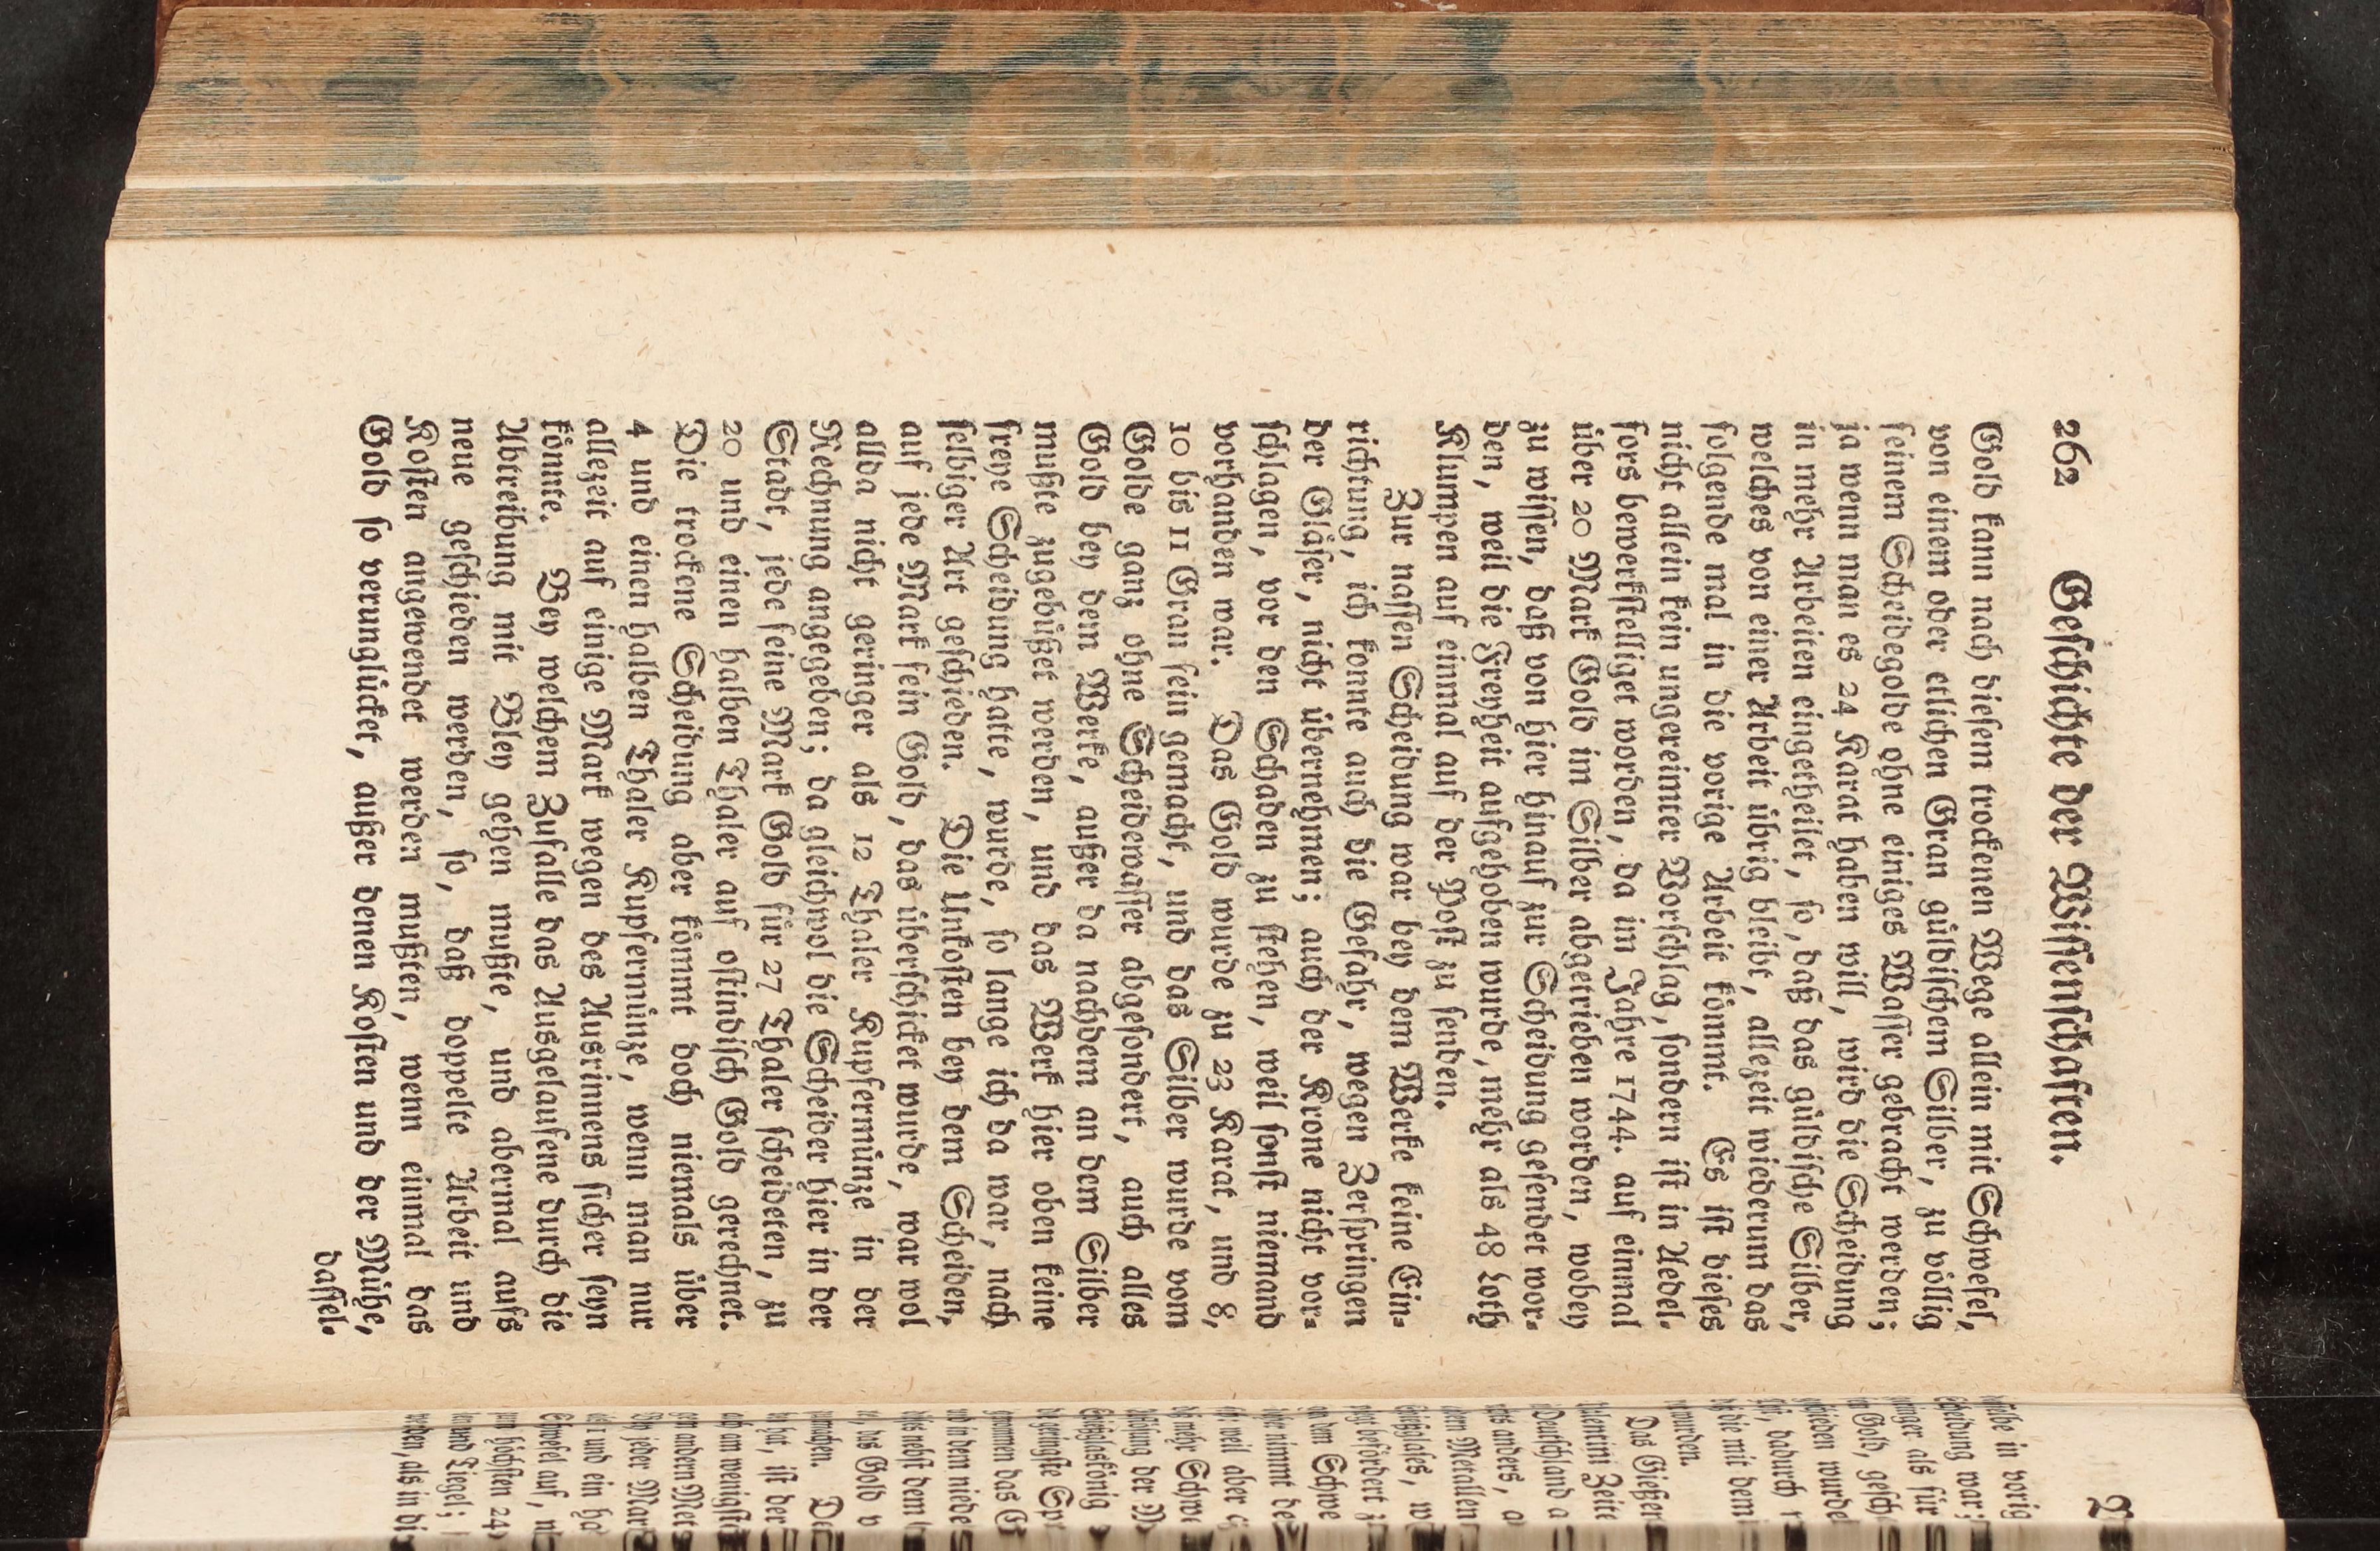 262 Geschichte der Wissenschaften.
Gold kann nach diesem trockenen Wege allein mit Schwefel,
von einem oder etlichen Gran güldischem Silber, zu völlig
feinem Scheidegolde ohne einiges Wasser gebracht werden;
ja wenn man es 24 Karat haben will, wird die Scheidung
in mehr Arbeiten eingetheilet, so, daß das güldische Silber,
welches von einer Arbeit übrig bleibt, allezeit wiederum das
folgende mal in die vorige Arbeit kömmt. Es ist dieses
nicht allein kein ungereimter Vorschlag, sondern ist in Aedel-
fors bewerkstelliget worden, da im Jahre 1744. auf einmal
über 20 Mark Gold im Silber abgetrieben worden, wobey
zu wissen, daß von hier hinauf zur Scheidung gesendet wor-
den, weil die Freyheit aufgehoben wurde, mehr als 48 Loth
Klumpen auf einmal auf der Post zu senden.
Zur nassen Scheidung war bey dem Werke keine Ein-
richtung, ich konnte auch die Gefahr, wegen Zerspringen
der Gläser, nicht übernehmen; auch der Krone nicht vor-
schlagen, vor den Schaden zu stehen, weil sonst niemand
vorhanden war. Das Gold wurde zu 23 Karat, und 8,
10 bis 11 Gran fein gemacht, und das Silber wurde vom
Golde ganz ohne Scheidewasser abgesondert, auch alles
Gold bey dem Werke, außer da nachdem an dem Silber
mußte zugebüßet werden, und das Werk hier oben keine
freye Scheidung hatte, wurde, so lange ich da war, nach
selbiger Art geschieden. Die Unkosten bey dem Scheiden,
auf jede Mark fein Gold, das überschicket wurde, war wol
allda nicht geringer als 12 Thaler Kupfermünze in der
Rechnung angegeben; da gleichwol die Scheider hier in der
Stadt, jede feine Mark Gold für 27 Thaler scheideten, zu
20 und einen halben Thaler auf ostindisch Gold gerechnet.
Die trockene Scheidung aber kömmt doch niemals über
4 und einen halben Thaler Kupfermünze, wenn man nur
allezeit auf einige Mark wegen des Ausrinnens sicher seyn
könnte. Bey welchem Zufalle das Ausgelaufene durch die
Abtreibung mit Bley gehen mußte, und abermal aufs
neue geschieden werden, so, daß doppelte Arbeit und
Kosten angewendet werden mußten, wenn einmal das
Gold so verunglücket, außer denen Kosten und der Mühe,
dassel-
in vorig
war
als für
Gold, gesch
wurde
dadurch
die mit dem
wurden.
Das Gießen
Zeite
Deutschland a
anders, a
Metallen
w
befördert
den Schwe
nimmt de
weil aber
mehr Schwe
der
geringste
das
in dem niede
nebst dem
das Gold
ist der
am wenigst
andern
jeder Mar
und ein ha
auf,
höchsten 24
und Tiegel;
werden, als in di